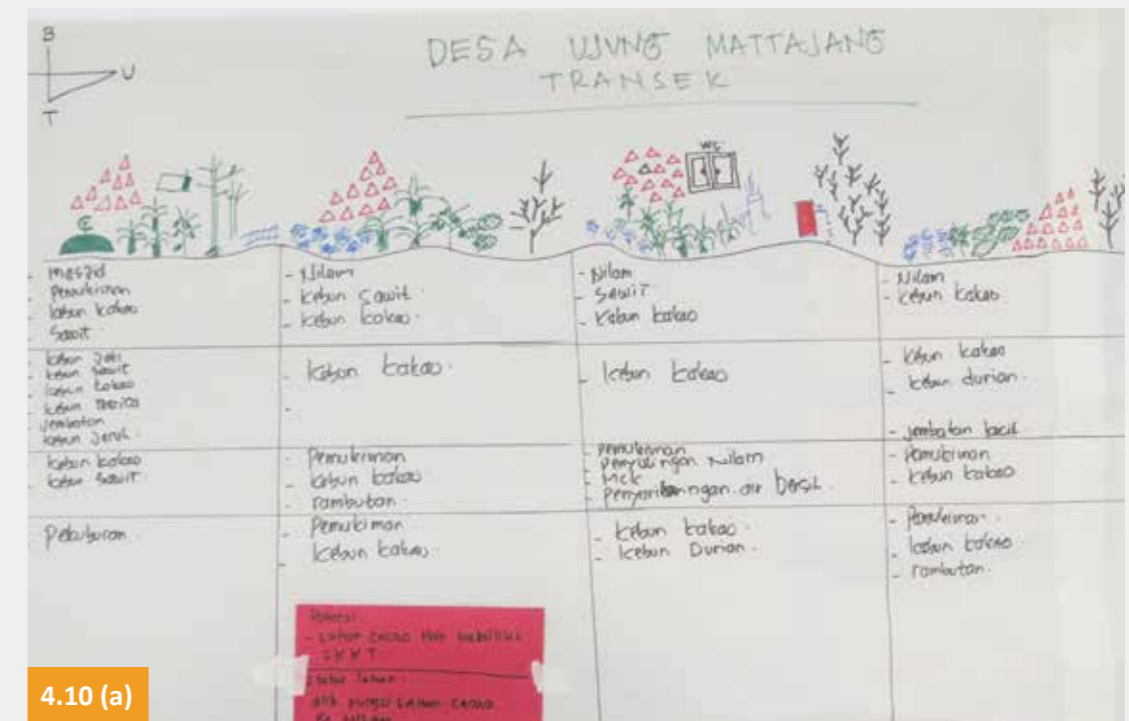 B
U
T
DESA UJUNG MATTAJANG
TRANSEK
WC
- masjid
- Pemukiman
- kebun kakao
- Sawit
- Nilam
- kebun sawit.
- kebun kakao.
- Nilam
- Sawit
- Kebun kakao
- Nilam
- kebun kakao
kebun Jati
kebun sawit
kebun kakao
kebun merica
Jembatan
kebun Jeruk.
- kebun kakao.
-
- kebun kakao
- kebun kakao
- kebun durian.
- jembatan kecil
kebun kakao
kebun sawit.
- Pemukiman
- kebun kakao
- rambutan.
- Pemukiman
- Penyulingan Nilam
- Mck
- Penyaringan air bersih.
- Pemukiman
- kebun kakao
Pekuburan.
- Pemukiman
- kebun kakao.
- kebun kakao.
- kebun Durian.
- Pemukiman.
- kebun kakao
- rambutan.
Potensi
- Lahan cacao
Status lahan
alih fungsi lahan cacao
ke
4.10 (a)